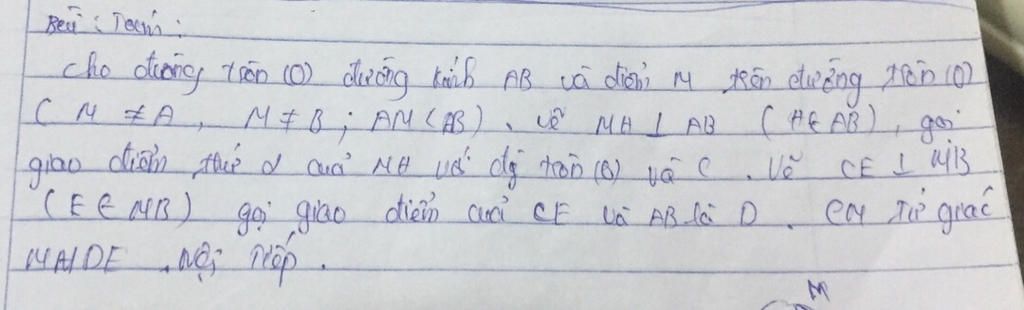 Bài Toán :
Cho đường tròn (O) đường kính AB và điểm M trên đường tròn (O)
( M ≠ A, M ≠ B ; AM < AB ) . Vẽ MH ⊥ AB ( H ∈ AB ), gọi
giao điểm thứ 2 của MH với đg tròn (O) và C . Vẽ CE ⊥ MB
( E ∈ MB ) gọi giao điểm của CE và AB là D . CM Tứ giác
MHDE . Nội Tiếp .
M